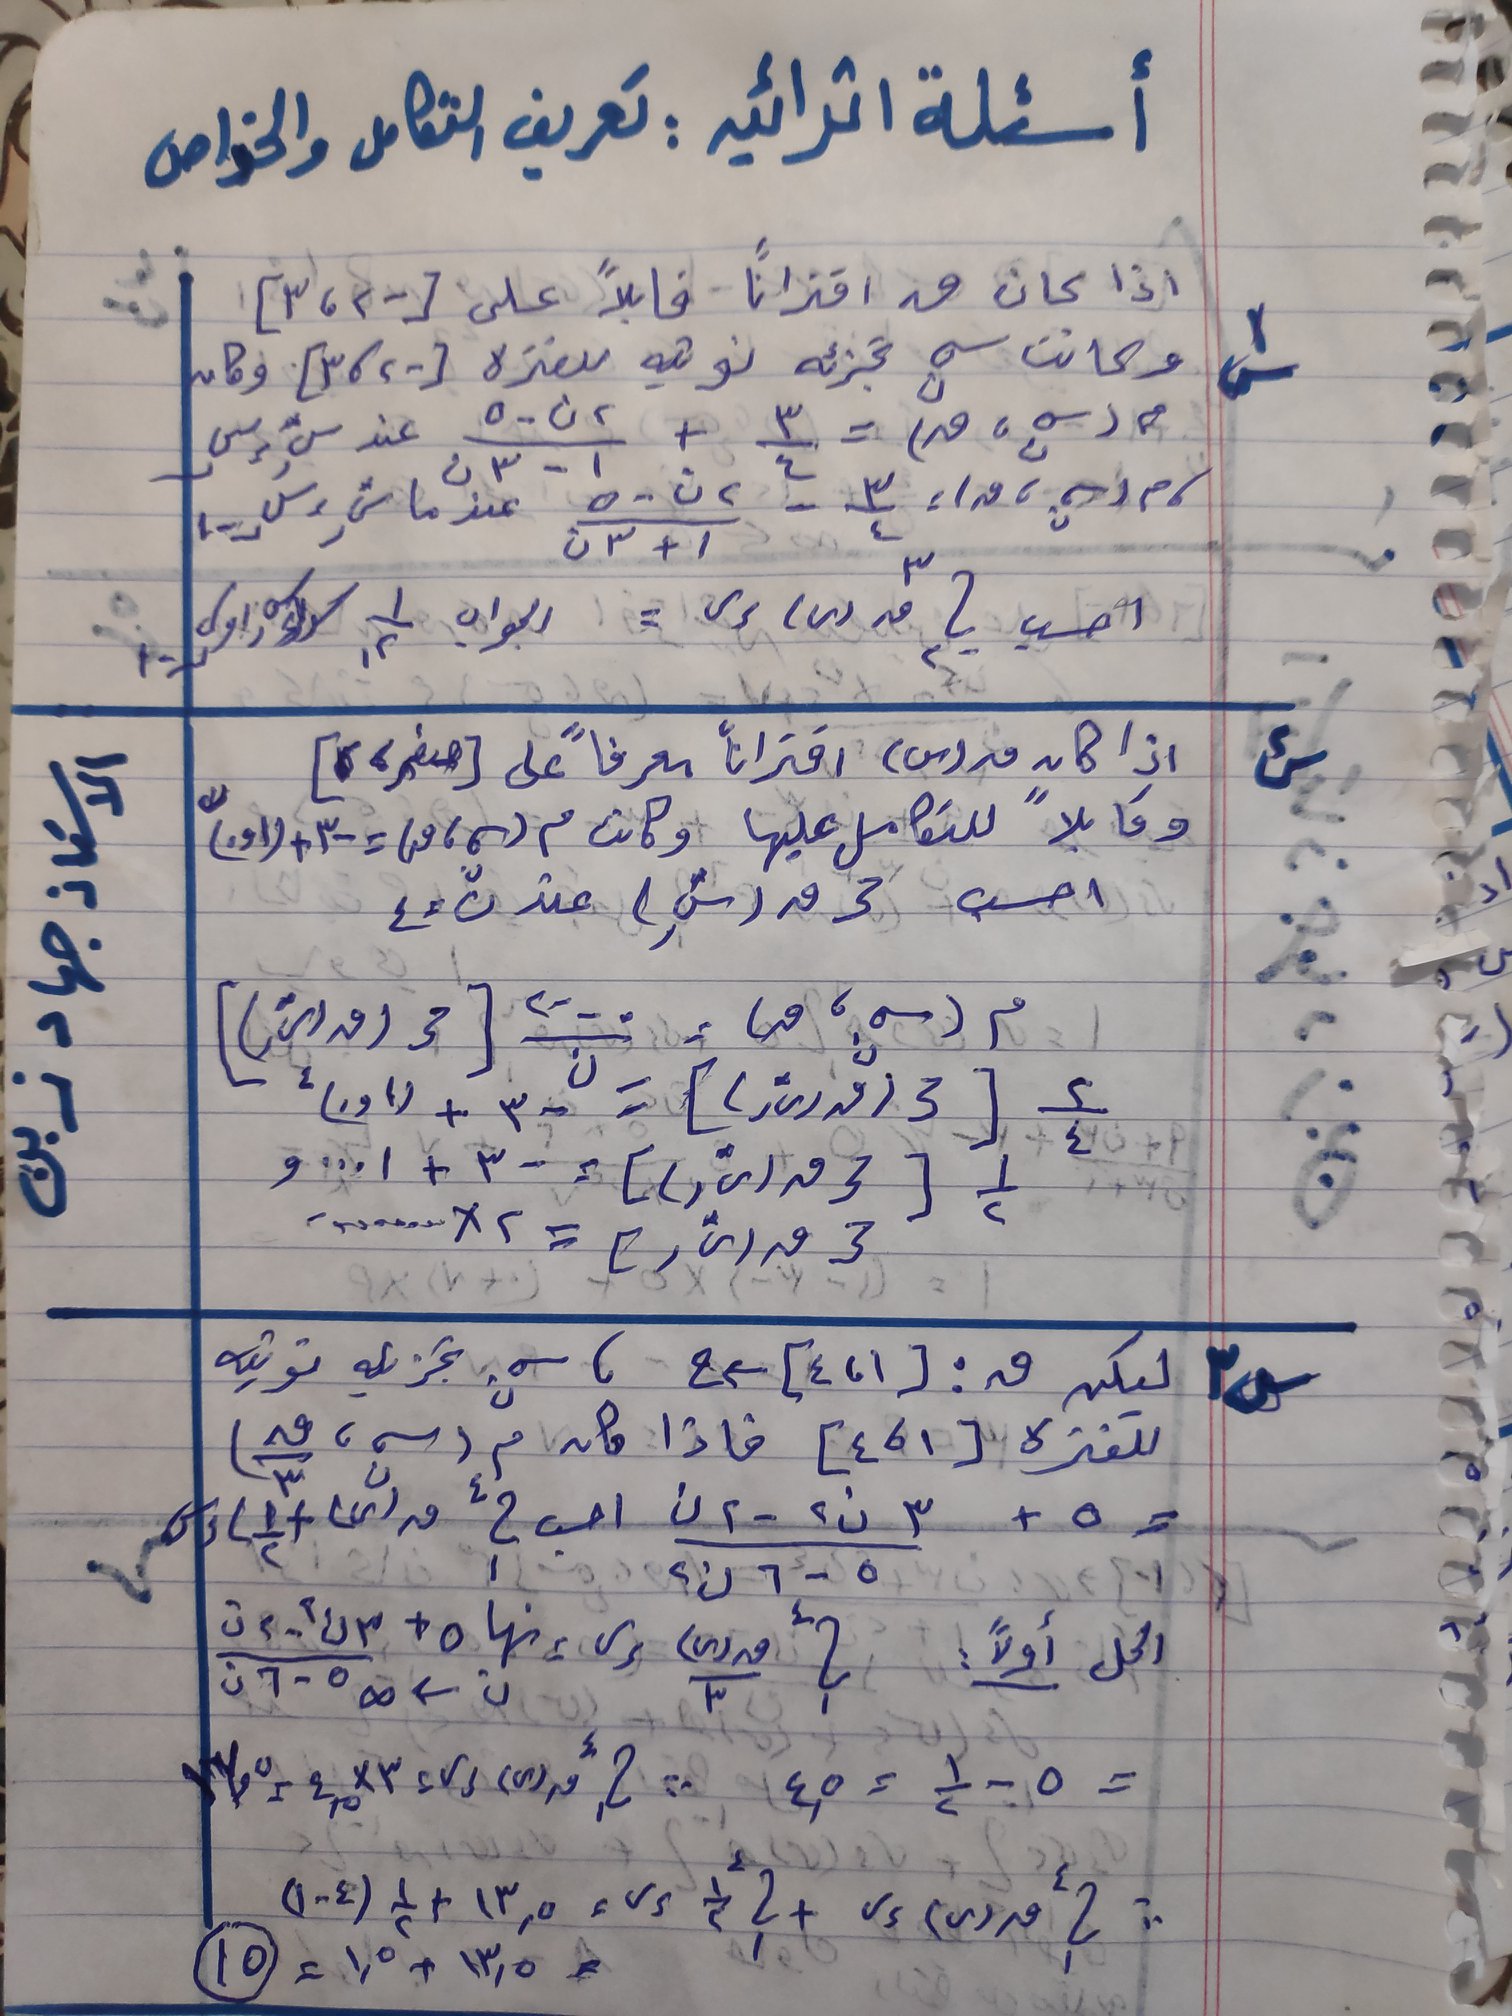 أسئلة اثرائيه : تعريف التكامل والخواص
س١
اذا كان ق اقتراناً قابلاً على [-٢، ٣]
وكانت سن تجزئه نونيه للفتره [-٢، ٣] وكان
م (سن، ق) = ٣/٤ + (٢ن - ٥)/(١ - ٣ن) عند س*ر = سر
، م (سن، ق) = ٣/٤ - (٢ن - ٥)/(١ + ٣ن) عندما س*ر = سر-١
احسب ∫_{-٢}^{٣} ق(س) ءس = الجواب ١/١٢
س٢
اذا كان ق(س) اقتراناً معرفاً على [صفر، ٢]
وقابلاً للتكامل عليها وكانت م (سن، ق) = -٣ + (٠,١)^ن
احسب مجـ ق(س*ر) عند ن = ٤
م (سن، ق) = (٢ - ٠)/ن [مجـ (ق(س*ر)]
٢/٤ [مجـ (ق(س*ر)] = -٣ + (٠,١)^٤
١/٢ [مجـ ق(س*ر)] = -٣ + ٠,٠٠٠١
مجـ ق(س*ر) = ٢ × .......
س٣
ليكن ق : [١، ٤] ← ح ، سن تجزئه نونيه
للفتره [١، ٤] فاذا كان م (سن، ق/٣)
= ٥ + (٣ن٢ - ٢ن)/(٥ - ٦ن٢) احسب ∫_{١}^{٤} (ق(س) + ١/٢) ءس
الحل أولاً: ∫_{١}^{٤} ق(س)/٣ ءس = نها ن←∞ ٥ + (٣ن٢ - ٢ن)/(٥ - ٦ن)
= ٥ - ١/٢ = ٤,٥ ∴ ∫_{١}^{٤} ق(س) ءس = ٣ × ٤,٥ = ١٣,٥
∴ ∫_{١}^{٤} ق(س) ءس + ∫_{١}^{٤} ١/٢ ءس = ١٣,٥ + ١/٢ (٤ - ١)
= ١٣,٥ + ١,٥ = ١٥
الاستاذ جهاد زين